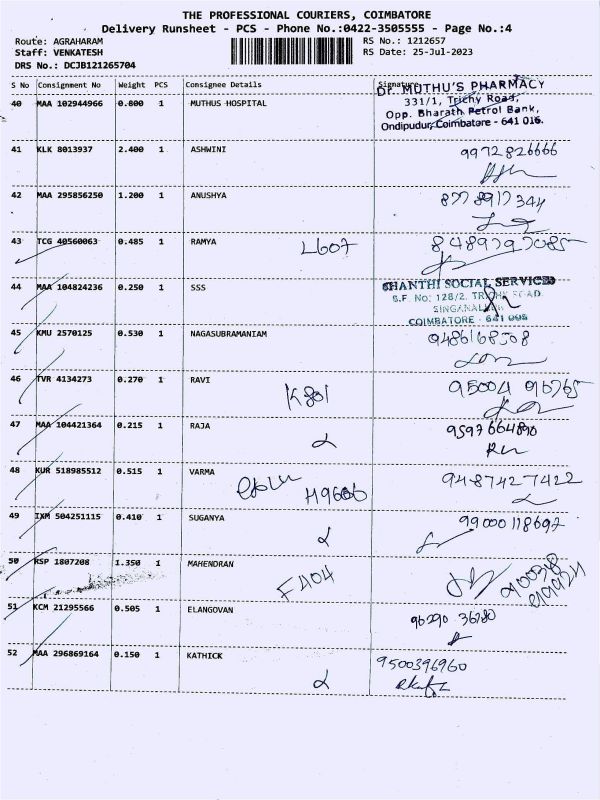 THE PROFESSIONAL COURIERS, COIMBATORE
Delivery Runsheet - PCS - Phone No.:0422-3505555 - Page No.:4
Route: AGRAHARAM
RS No.: 1212657
Staff: VENKATESH
RS Date: 25-Jul-2023
DRS No.: DCJB121265704
S No Consignment No Weight PCS Consignee Details Signature
40 MAA 102944966 0.800 1 MUTHUS HOSPITAL
Dr. MUTHU'S PHARMACY
331/1, Trichy Road,
Opp. Bharath Petrol Bank,
Ondipudur, Coimbatore - 641 016.
41 KLK 8013937 2.400 1 ASHWINI 9972826666
42 MAA 295856250 1.200 1 ANUSHYA 8778917344
43 TCG 40560063 0.485 1 RAMYA L607 8489797085
44 MAA 104824236 0.250 1 SSS
SHANTHI SOCIAL SERVICES
S.F. No: 128/2. TRICHY ROAD
SINGANALLUR
COIMBATORE - 641 005
45 KMU 2570125 0.530 1 NAGASUBRAMANIAM 9486168508
46 TVR 4134273 0.270 1 RAVI K801 95004 96765
47 MAA 104421364 0.215 1 RAJA 9597664890
48 KUR 518985512 0.515 1 VARMA H9606 9487427422
49 IXM 504251115 0.410 1 SUGANYA 99000118697
50 RSP 1807208 1.350 1 MAHENDRAN F404
51 KCM 21295566 0.505 1 ELANGOVAN 96290 36780
52 MAA 296869164 0.150 1 KATHICK 9500396960